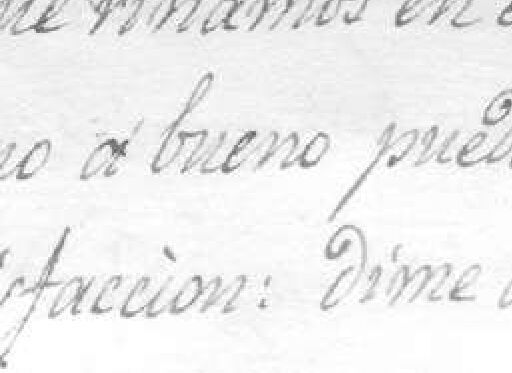 riñamos en
no á bueno pued
isfacciòn: dime